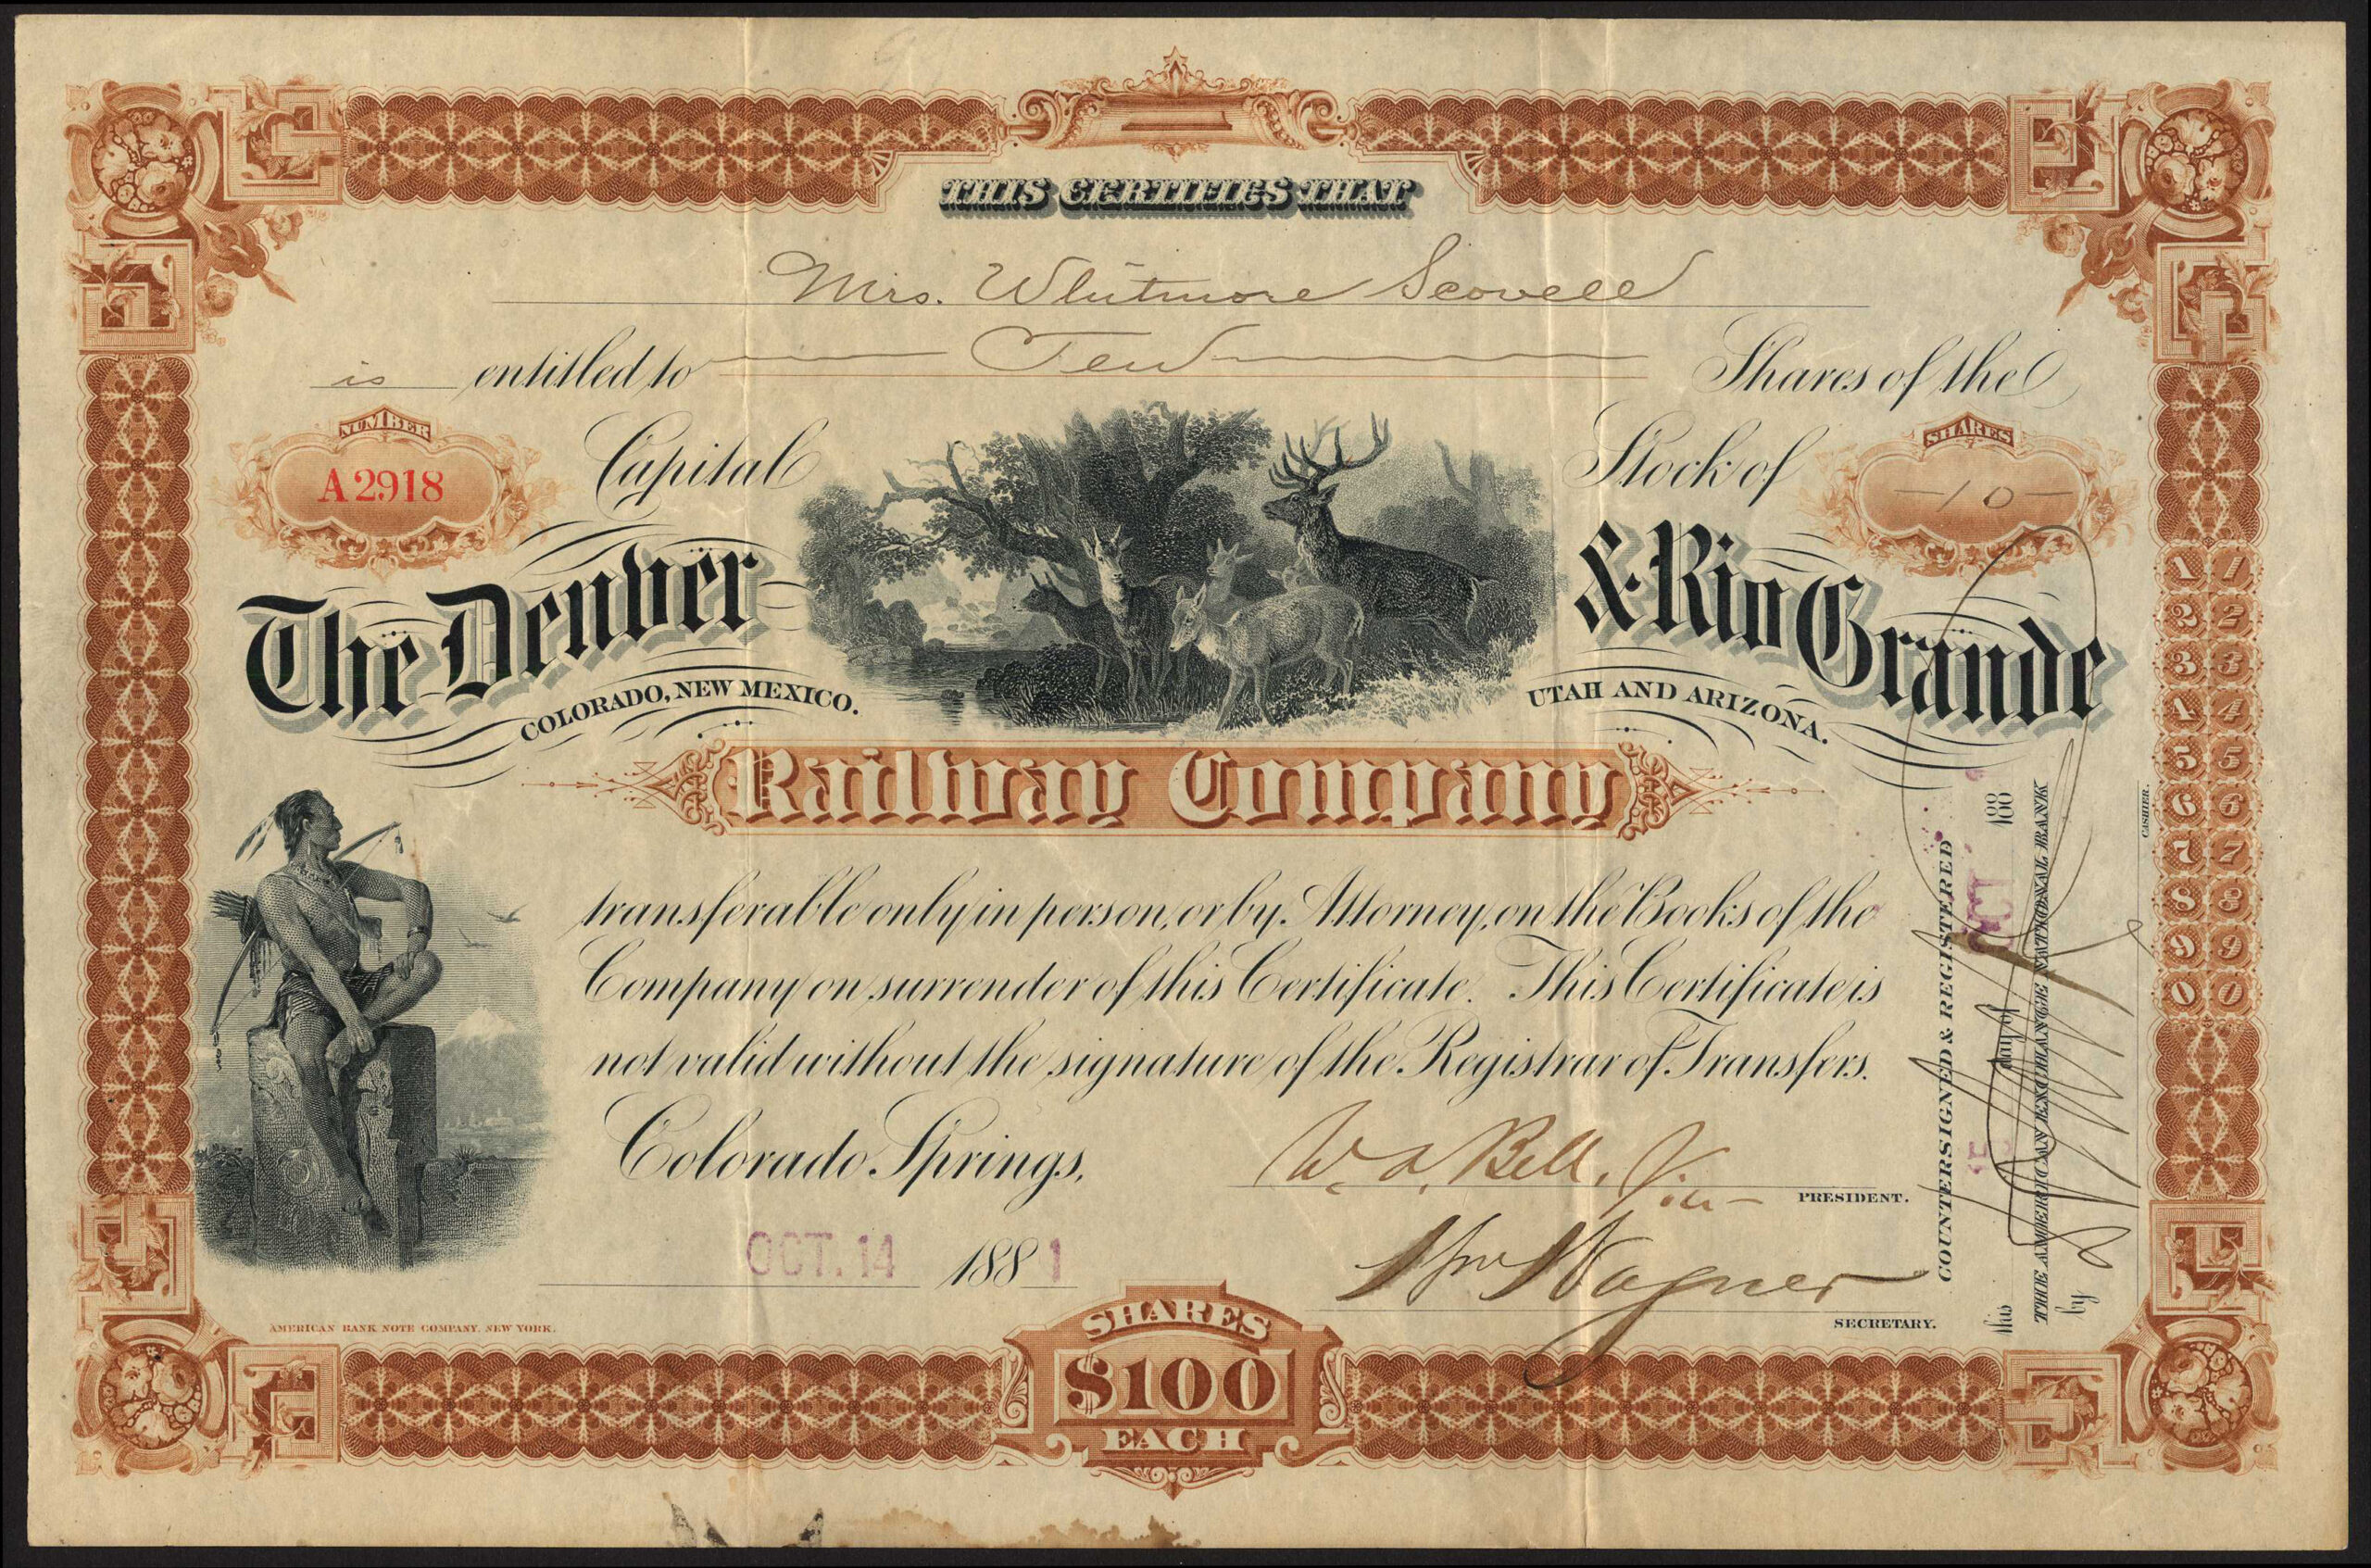 THIS CERTIFIES THAT
Mrs. Whitmore Scovell
is entitled to Ten Shares of the
NUMBER
A 2918
Capital Stock of
SHARES
-10-
The Denver & Rio Grande
COLORADO, NEW MEXICO. UTAH AND ARIZONA.
Railway Company
transferable only in person, or by Attorney, on the Books of the
Company on surrender of this Certificate. This Certificate is
not valid without the signature of the Registrar of Transfers.
Colorado Springs,
OCT. 14 1881
W. A. Bell, Vice- PRESIDENT.
Wm Wagner
SECRETARY.
AMERICAN BANK NOTE COMPANY, NEW YORK.
SHARES
$100
EACH
COUNTERSIGNED & REGISTERED
this day of OCT 188
THE AMERICAN EXCHANGE NATIONAL BANK
by
CASHIER.
1 1
2 2
3 3
4 4
5 5
6 6
7 7
8 8
9 9
0 0